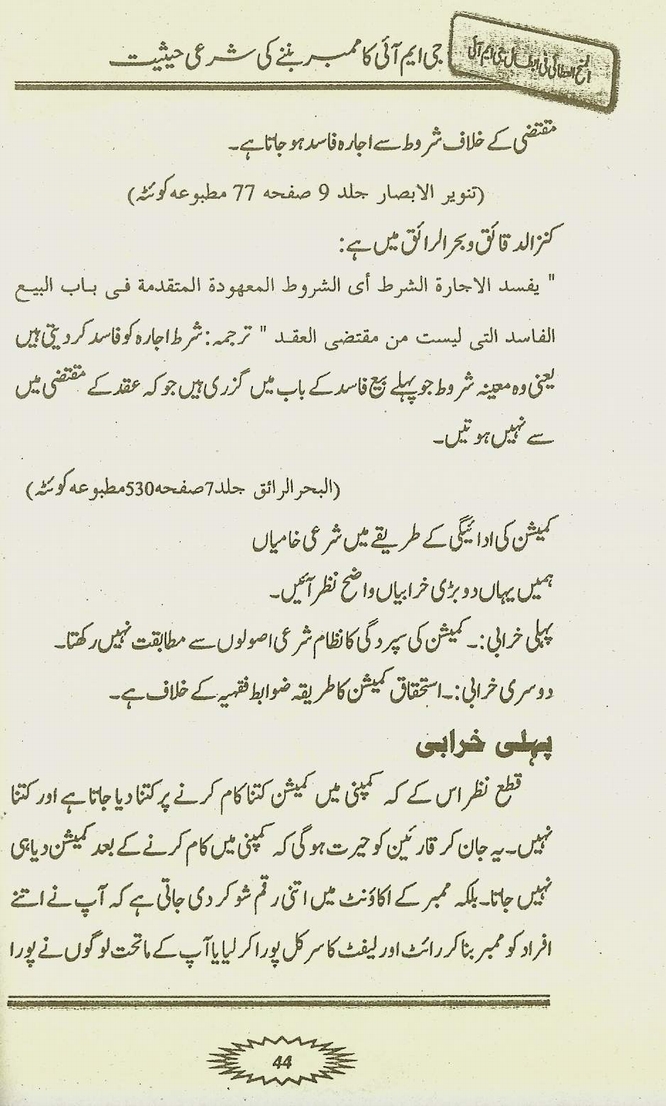 جی ایم آئی کا ممبر بننے کی شرعی حیثیت
مقتضی کے خلاف شروط سے اجارہ فاسد ہو جاتا ہے۔
(تنویر الابصار جلد 9 صفحہ 77 مطبوعہ کوئٹہ)
کنز الدقائق و بحر الرائق میں ہے:
" یفسد الاجارة الشرط أی الشروط المعهودة المتقدمة فی باب البیع
الفاسد التی لیست من مقتضی العقد " ترجمہ: شرط اجارہ کو فاسد کر دیتی ہیں
یعنی وہ معینہ شروط جو پہلے بیع فاسد کے باب میں گزری ہیں جو کہ عقد کے مقتضی میں
سے نہیں ہوتیں۔
(البحر الرائق جلد7صفحہ530مطبوعہ کوئٹہ)
کمیشن کی ادائیگی کے طریقے میں شرعی خامیاں
ہمیں یہاں دو بڑی خرابیاں واضح نظر آئیں۔
پہلی خرابی:۔ کمیشن کی سپردگی کا نظام شرعی اصولوں سے مطابقت نہیں رکھتا۔
دوسری خرابی:۔ استحقاق کمیشن کا طریقہ ضوابط فقہیہ کے خلاف ہے۔
پہلی خرابی
قطع نظر اس کے کہ کمپنی میں کمیشن کتنا کام کرنے پر کتنا دیا جاتا ہے اور کتنا
نہیں۔ یہ جان کر قارئین کو حیرت ہوگی کہ کمپنی میں کام کرنے کے بعد کمیشن دیا ہی
نہیں جاتا۔ بلکہ ممبر کے اکاؤنٹ میں اتنی رقم شو کر دی جاتی ہے کہ آپ نے اتنے
افراد کو ممبر بنا کر رائٹ اور لیفٹ کا سرکل پورا کر لیا یا آپ کے ماتحت لوگوں نے پورا
44